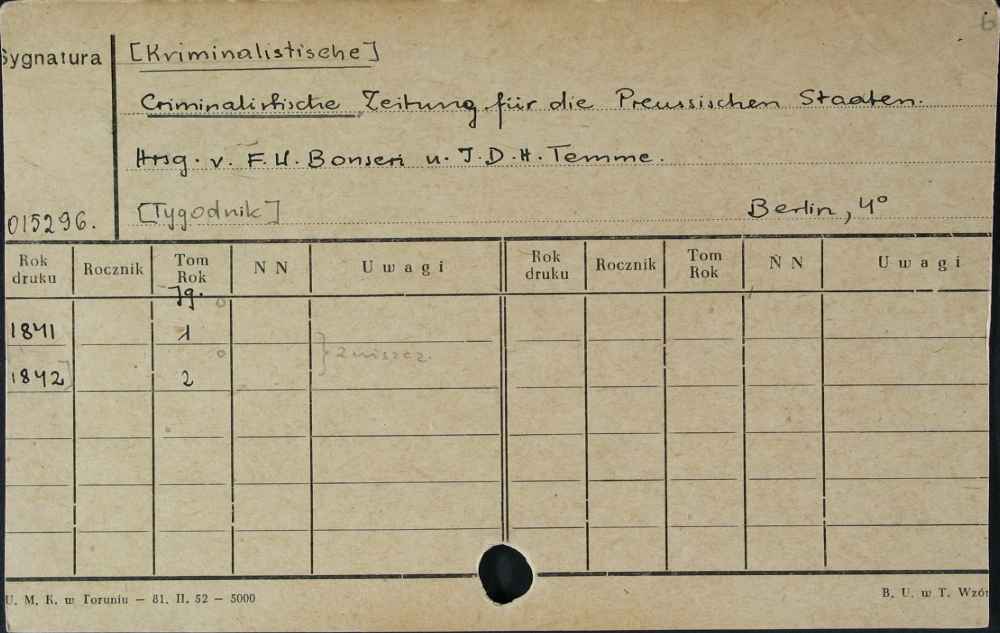 6
Sygnatura [Kriminalistische]
Criminalistische Zeitung für die Preussischen Staaten.
Hrsg. v. F. W. Bonseri u. J. D. H. Temme.
015296. [Tygodnik] Berlin, 4°
Rok druku Rocznik Tom Rok N N Uwagi Rok druku Rocznik Tom Rok N N Uwagi
Jg.
1841 1
} zniszcz.
1842] 2
U. M. K. w Toruniu — 81. II. 52 — 5000 B. U. w T. Wzór